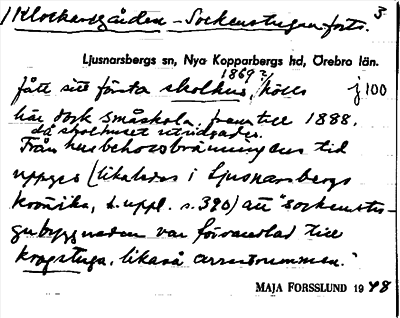 1 Klockaregården - Sockenstugan forts. 3
Ljusnarsbergs sn, Nya Kopparbergs hd, Örebro län.
1869?
fått sitt första skolhus, hölls j 100
här dock småskola fram till 1888,
då skolhuset utvidgades.
Från husbehovsbränningens tid
uppges (likaledes i Ljusnarsbergs
krönika, 2. uppl. s. 390) att "sockenstu-
gubyggnaden var förvandlad till
krogstuga, likaså arrestrummen."
MAJA FORSSLUND 1948